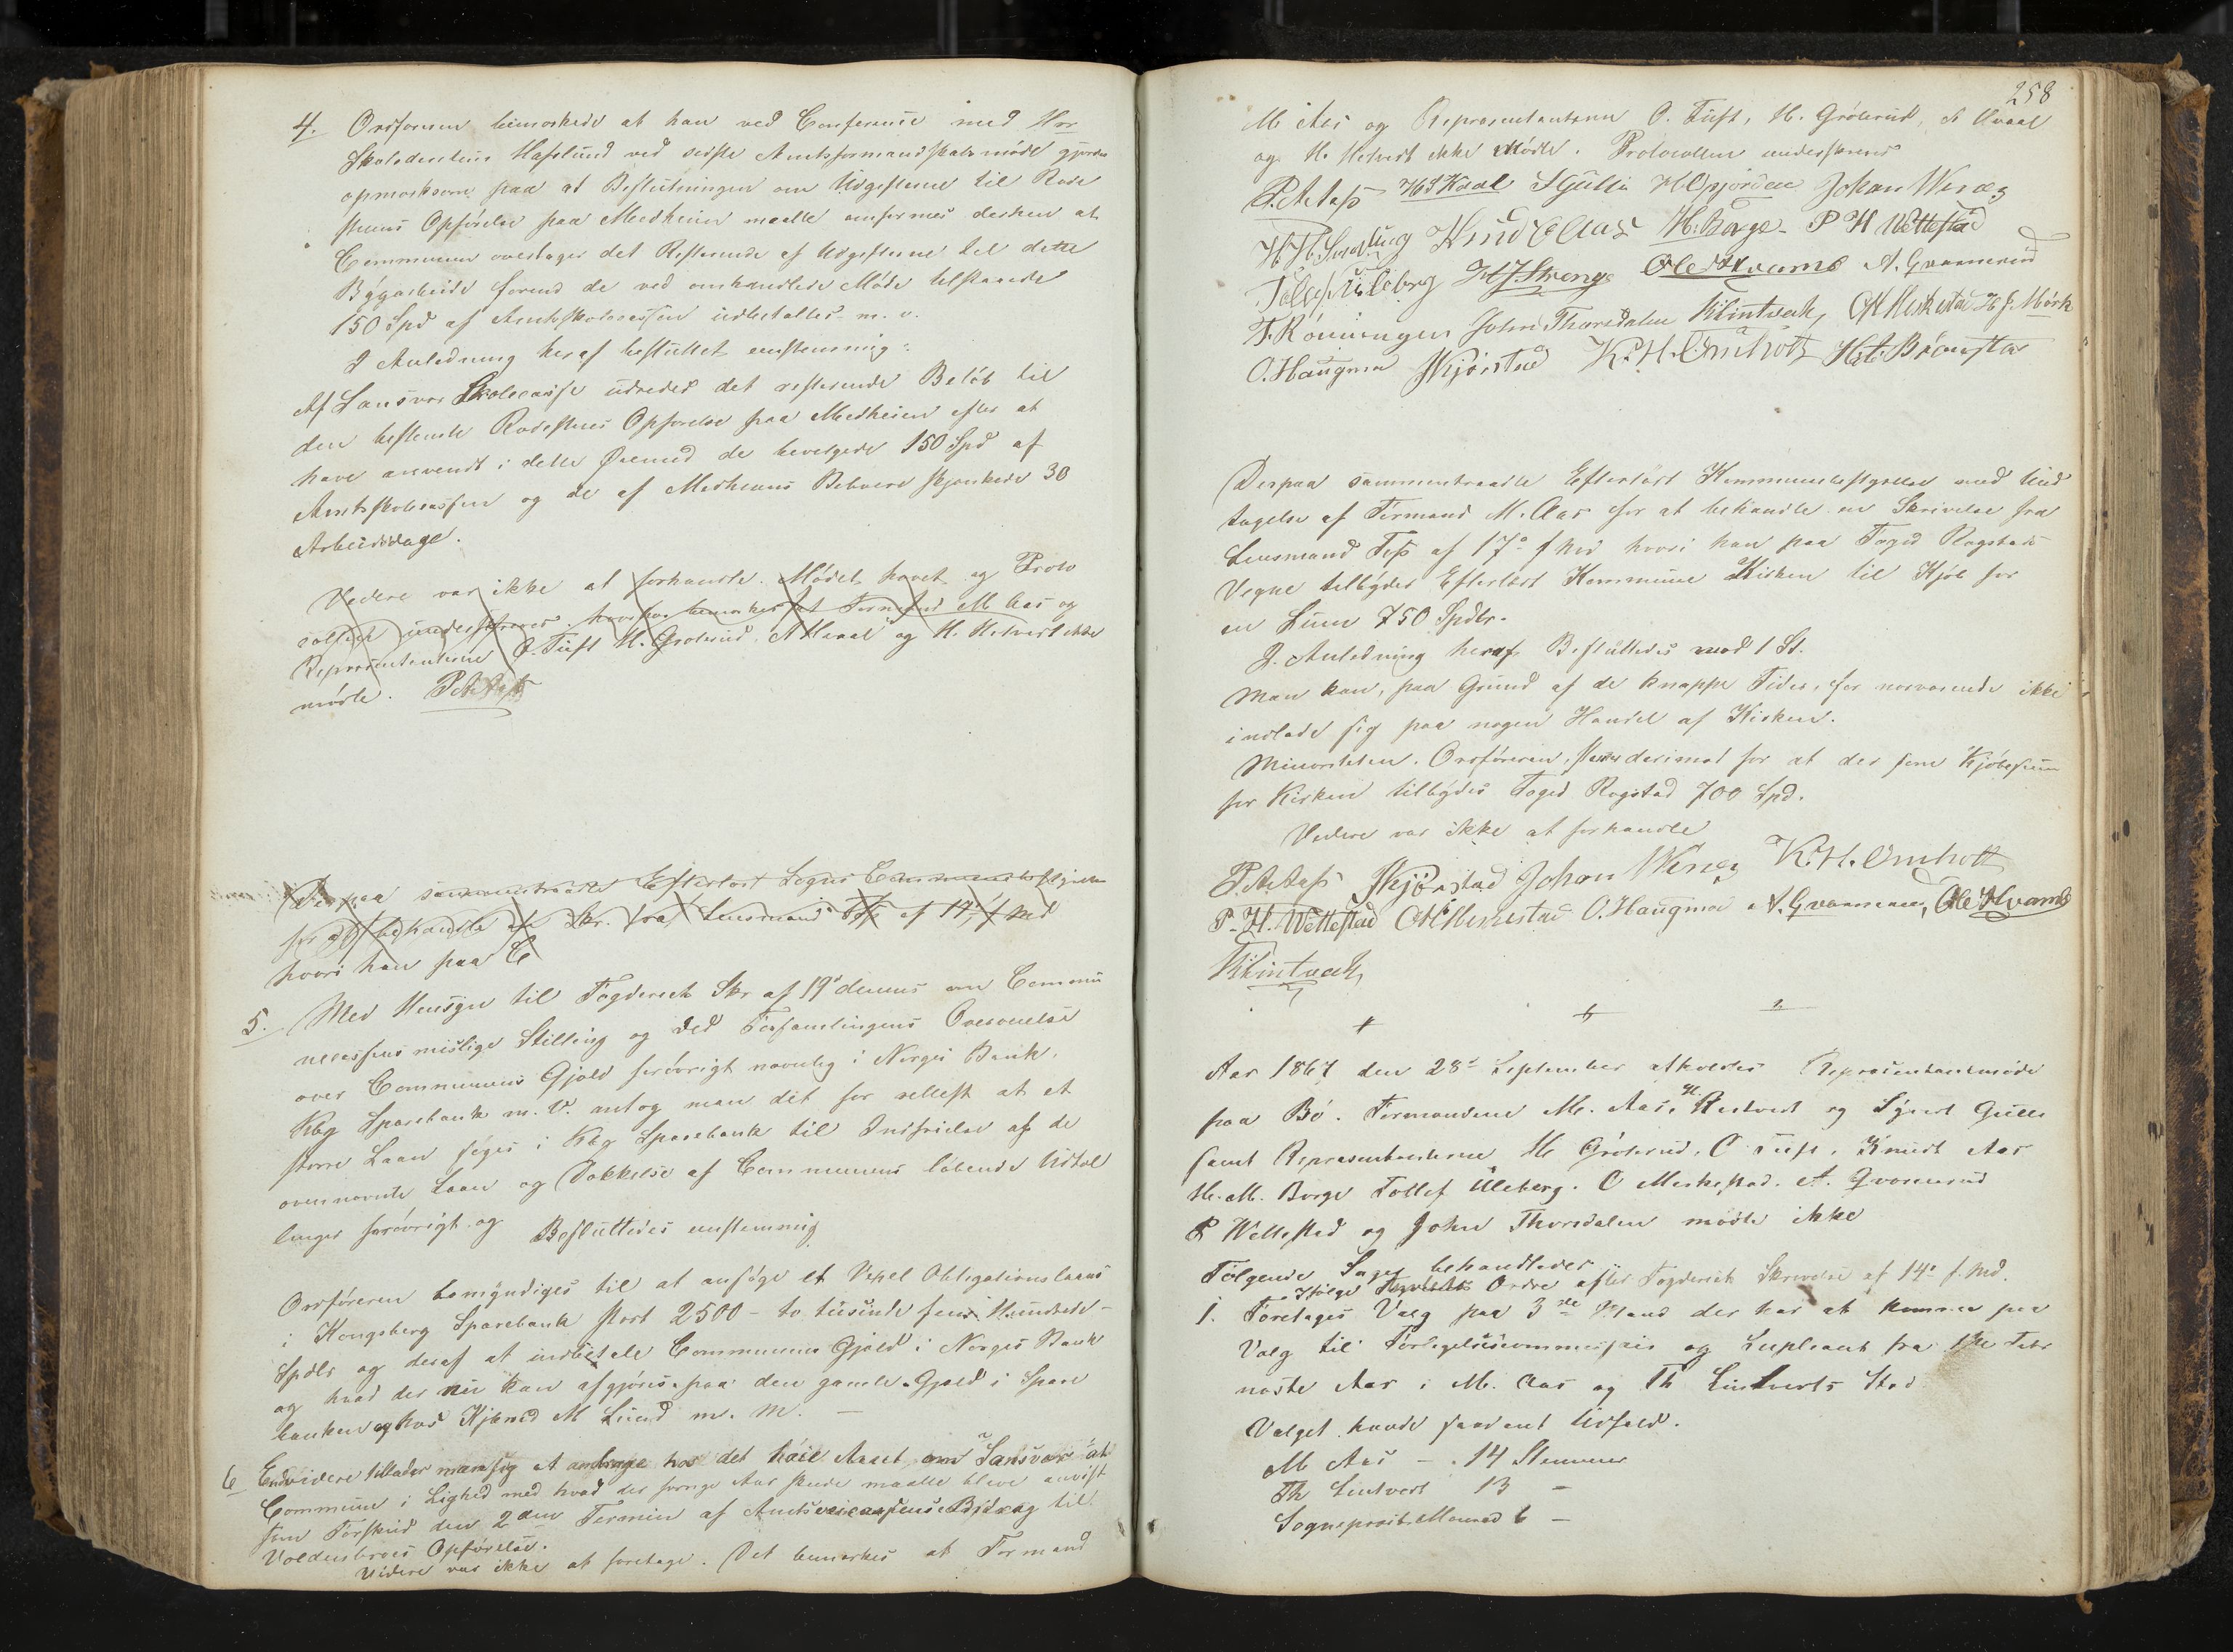 4. Ordføreren bemærkede at han ved Conference med Hr
Skoledirecteur Haslund ved sidste Amtsformandskabsmøde gjordes
opmærksom paa at Beslutningen om Udgifterne til Rode
stuens Opførelse paa Medheien maatte omformes derhen at
Communen overtager det Resterende af Udgifterne til dette
Bygarbeide forend de ved omhandlede Møde tilstaaede
150 Spd af Amtsskolecassen udbetalles m. v.
I Anledning heraf besluttet enstemmig:
Af Sansvær Skolecasse udredes det resterende Beløb til
den bestemte Rodestues Opførelse paa Medheien efter at
have anvendt i dette Øiemed de bevilgede 150 Spd af
Amtsskolecassen og de af Medheiens Beboere skjænkede 30
Arbeidsdage.
Videre var ikke at forhandle. Mødet hævet og Proto
collen underskreves. hvorfor bemærkes at Formand M Aas og
Repræsentanterne O. Tuft H. Grøterud, A Hvaal og H. Hedvert ikke
mødte.
Derpaa sammentraadte Efterløt Sogns Communebestyrelse
for at behandle en Skr. fra Lensmand Tofs af 17 f Md
hvori han paa
5. Med Hensyn til Fogderiets Skr af 19de dennes om Commu
necassens mislige Stilling og ded Forsamlingens Overveielse
over Communens Gjæld forøvrigt navnlig i Norges Bank,
Kbg Sparebank m. V. antog man dét for rettest at et
større Laan søges i Kbg Sparebank til Indfrielse af de
ovennævnte Laan og Dækkelse af Communens løbende Udtæl
linger forøvrigt og Besluttedes enstemmig
Ordføreren bemyndiges til at ansøge et Vexel Obligationslaans
i Kongsberg Sparebank stort 2500 - to tusinde fem Hundrede -
Spdlr og deraf at indbetale Communens Gjæld i Norges Bank
og hvad der nu kan afgjøres paa den gamle Gjæld i Spare
banken og hos Kjbmd M Lund m. M. —
6 Endvidere tillader man sig at andrage hos det høie Amt, om Sansvær at
Commune i Lighed med hvad der forrige Aar skede maatte blive anvist
som Forskud den 2den Termin af Amtsveicassens Bidrag til
Voldenbroes Opførelse.
Videre var ikke at foretage. Det bemærkes at Formand
258
M Aas og Repræsentanterne O. Tuft, H. Grøterud, A Hvaal
og H. Hedvert ikke Mødte. Protocollen underskreves
H S Hvaal Johan Werner
Knud Aas H. Borge P H Wettestad
Tollef Uleberg H J Strenge Ole Hvams A. Gvarnerud
T. Rønningen John Thorsdalen Th Lintvedt, O H Meskestad H J. Mørk
O. Haugma JKjørstad K. H. Omholt
Derpaa sammentraadte Efterløt Kommunebestyrelse med Und
tagelse af Formand M. Aas for at behandle en Skrivelse fra
Lensmand Tofs af 17de f Md hvori han paa Foged Rogstads
Vegne tilbyder Efterløt Kommune Kirken til Kjøb for
en Sum 750 Spdlr.
I. Anledning heraf Besluttedes mod 1 St.
Man kan, paa Grund af de knappe Tider, for nærværende ikke
indlade sig paa nogen Handel af Kirken.
Minoriteten. Ordføreren, stemte derimod for at der som Kjøbesum
for Kirken tilbydes Foged Rogstad 700 Spd.
Videre var ikke at forhandle
JKjørstad Johan Werner K. H. Omholt
P. H. Wettestad O H Meskestad O. Haugma A. Gvarnerud, Ole Hvams
Th Lintvedt,
Aar 1867 den 28de September afholdtes Repræsentantmøde
paa Bø. Formændene M. Aas, H Hedvert og Sjurd Gulli
samt Repræsentanterne H Grøterud, O Tuft, Knudt Aas
H. M. Borge Tollef Uleberg. O Meskestad. A. Gvarnerud
P Wettestad og John Thorsdalen mødte ikke
Følgende Sager behandledes:
Ifølge Ordre efter Fogderiets Skrivelse af 14de f. Md.
1. Foretages Valg paa 3de Mand der har at komme paa
Valg til Forligelsescommissair og Supleant fra 1ste Febr
næste Aar i M. Aas og Th Lintvedts Sted
Valget havde saadant Udfald.
M Aas - 14 Stemmer
Th Lintvedt 13 -
Sogneprest Monrad 6 -